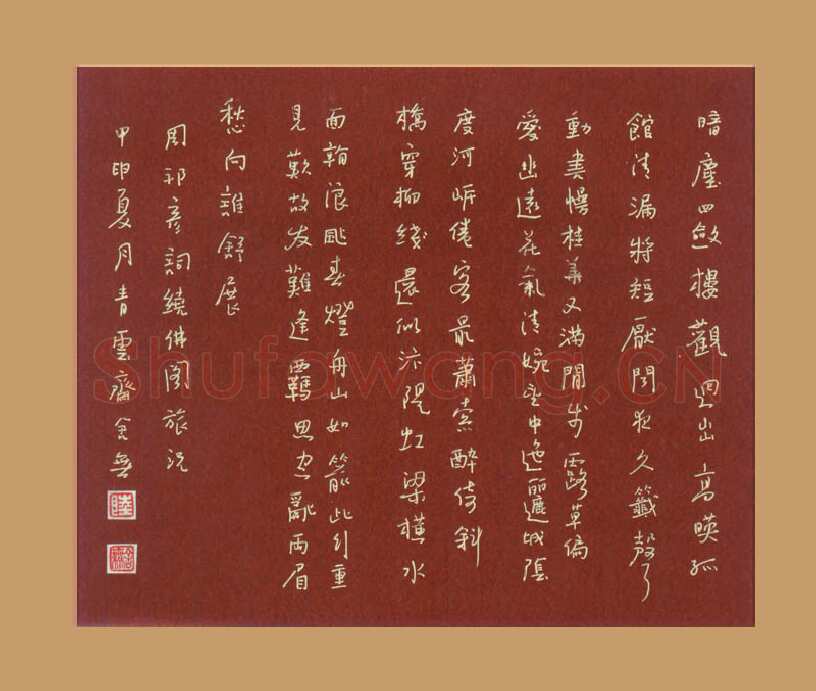 暗塵四斂樓觀迥出高暎孤
館清漏將短厭聞夜久籤聲
動書幔桂華又滿閒步露草偏
愛幽遠花氣清婉望中迤邐城陰
度河岍倦客最蕭索醉倚斜
橋穿柳綫還似汴隄虹梁橫水
面浪颭春燈舟下如箭此行重
見歎故友難逢羈思空亂兩眉
愁向誰舒展
周邦彥詞繞佛閣旅況
甲申夏月青雲齋
Shufawang.CN